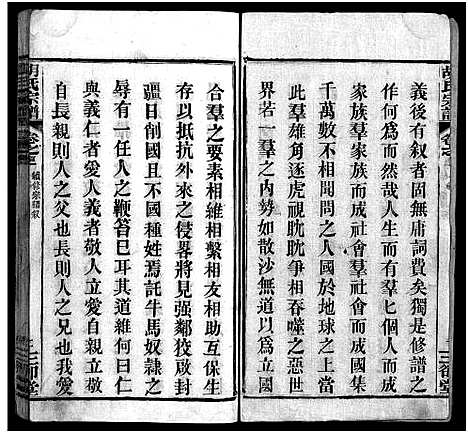 義後有叙者固無庸詞費矣獨是修譜之
作何為而然哉人生而有羣七個人而成
家族羣家族而成社會羣社會而成國集
千萬數不相同之人國於地球之上當
此羣雄角逐虎視眈眈爭相吞噬之惡世
界若一羣之內勢如散沙無道以為立國
合羣之要素相維相繫相友相助互保生
存以抵抗外來之侵畧將見强鄰狡啟封
疆日削國且不國種姓焉託牛馬奴隸之
辱有一任人之鞭笞已耳其道維何曰仁
與義仁者愛人義者敬人立愛自親立敬
自長親則人之父也長則人之兄也我愛
胡氏宗譜
卷之
續修宗譜叙